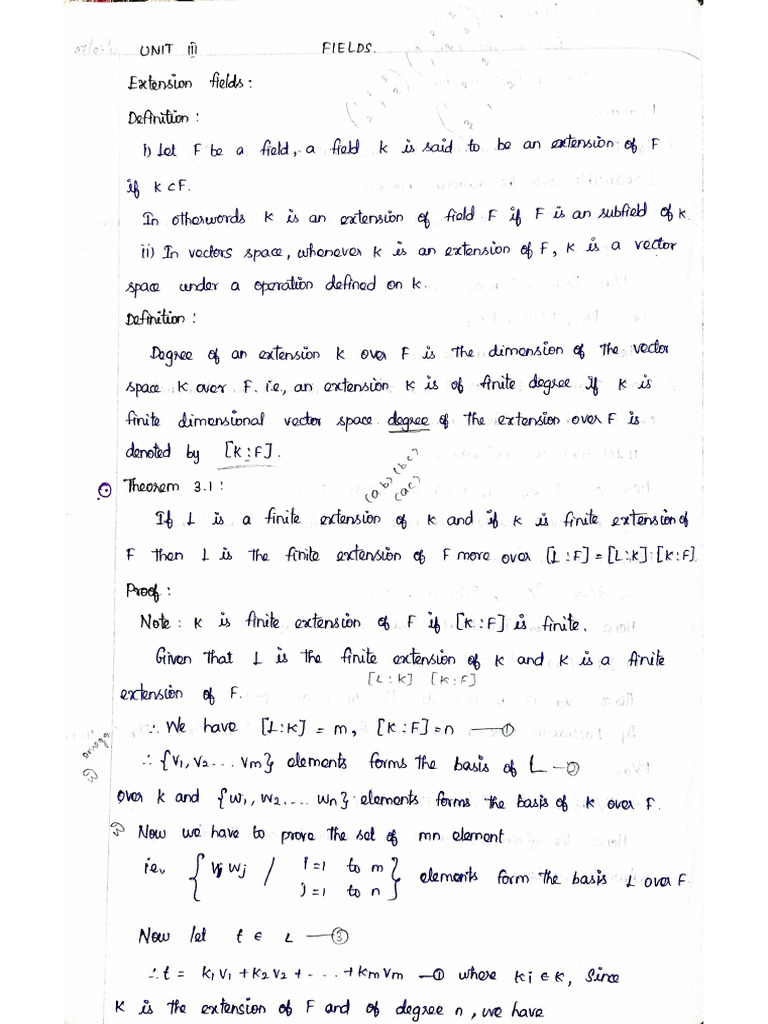 UNIT III FIELDS.
Extension fields :
Definition :
i) Let F be a field, a field K is said to be an extension of F
if K ⊂ F.
In otherwords K is an extension of field F if F is an subfield of K.
ii) In vectors space, whenever K is an extension of F, K is a vector
space under a operation defined on K.
Definition :
Degree of an extension K over F is the dimension of the vector
space K over F. i.e., an extension K is of finite degree if K is
finite dimensional vector space. degree of the extension over F is
denoted by [K : F].
(ab)(bc)
(ac)
Theorem 3.1 :
If L is a finite extension of K and if K is finite extension of
F then L is the finite extension of F more over [L : F] = [L : K] [K : F]
Proof :
Note : K is finite extension of F if [K : F] is finite.
Given that L is the finite extension of K and K is a finite
[L : K] [K : F]
extension of F.
∴ We have [L : K] = m, [K : F] = n —①
∴ {v1, v2 ... vm} elements forms the basis of L —②
over K and {w1, w2 .... wn} elements forms the basis of K over F.
Now we have to prove the set of mn element
i.e., { vj wj / i=1 to m
j=1 to n } elements form the basis L over F
Now let t ∈ L —③
∴ t = k1v1 + k2v2 + - ... + kmvm —① where ki ∈ K, Since
K is the extension of F and of degree n, we have